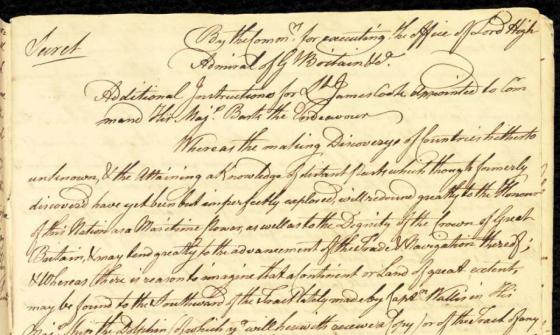 Secret
By the Comm.rs for executing the Office of Lord High
Admiral of Gt. Britain &ca.
Additional Instructions for Lt. James Cook appointed to Com
mand His Maj.s Bark the Endeavour
Whereas the making Discoverys of Countries hitherto
unknown, & the Attaining a Knowledge of distant Parts which though formerly
discover'd have yet been but imperfectly explored, will redound greatly to the Honour
of this Nation as a Maritime Power, as well as to the Dignity of the Crown of Great
Britain, & may tend greatly to the advancement of the Trade & Navigation thereof;
& Whereas there is reason to imagine that a Continent or Land of great extent,
may be found to the Southward of the Tract lately made by Capt.n Wallis in His
Maj.s Ship the Dolphin (of which you will herewith receive a Copy) or of the Tract of any